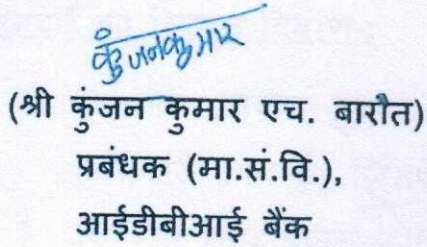 कुंजनकुमार
(श्री कुंजन कुमार एच. बारौत)
प्रबंधक (मा.सं.वि.),
आईडीबीआई बैंक